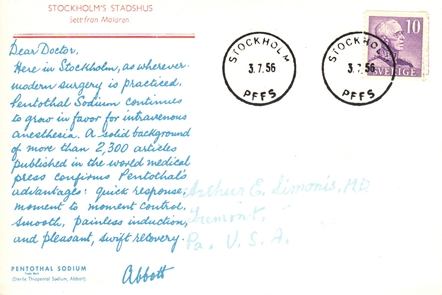 STOCKHOLM'S STADSHUS
Sett från Mälaren
Dear Doctor,
Here in Stockholm, as wherever
modern surgery is practiced,
Pentothal Sodium continues
to grow in favor for intravenous
anesthesia. A solid background
of more than 2,300 articles
published in the world medical
press confirms Pentothal's
advantages: quick response,
moment to moment control,
smooth, painless induction,
and pleasant, swift recovery.
Abbott
PENTOTHAL SODIUM
(Sterile Thiopental Sodium, Abbott)
STOCKHOLM
3.7.56
PFFS
STOCKHOLM
3.7.56
PFFS
10
SVERIGE
Arthur E. Simonis, MD
Tremont,
Pa. U.S.A.